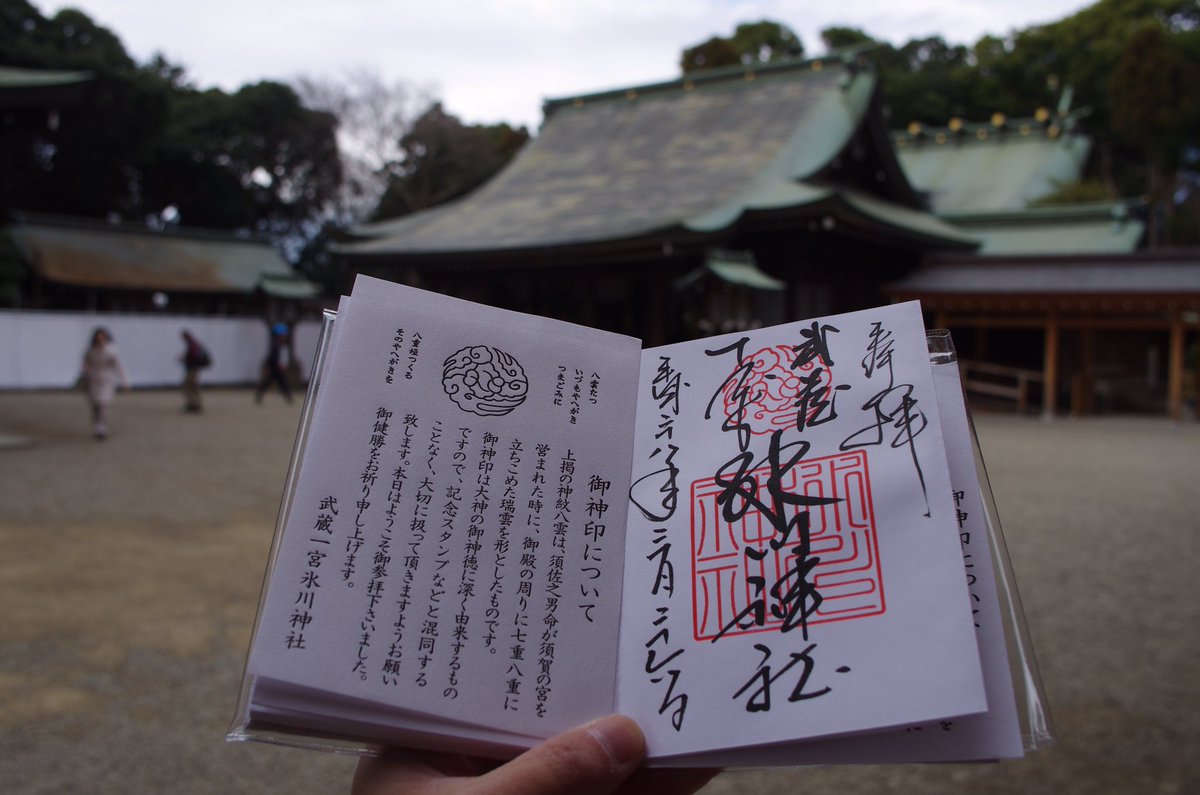 八雲たつ
いづもやへがき
つまごみに
八重垣つくる
そのやへがきを
御神印について
上掲の神紋八雲は、須佐之男命が須賀の宮を
営まれた時に、御殿の周りに七重八重に
立ちこめた瑞雲を形としたものです。
御神印は大神の御神徳に深く由来するもの
ですので、記念スタンプなどと混同する
ことなく、大切に扱って頂きますようお願い
致します。本日はようこそ御参拝下さいました。
御健勝をお祈り申し上げます。
武蔵一宮氷川神社
奉拝
武蔵
氷川神社
御神印について